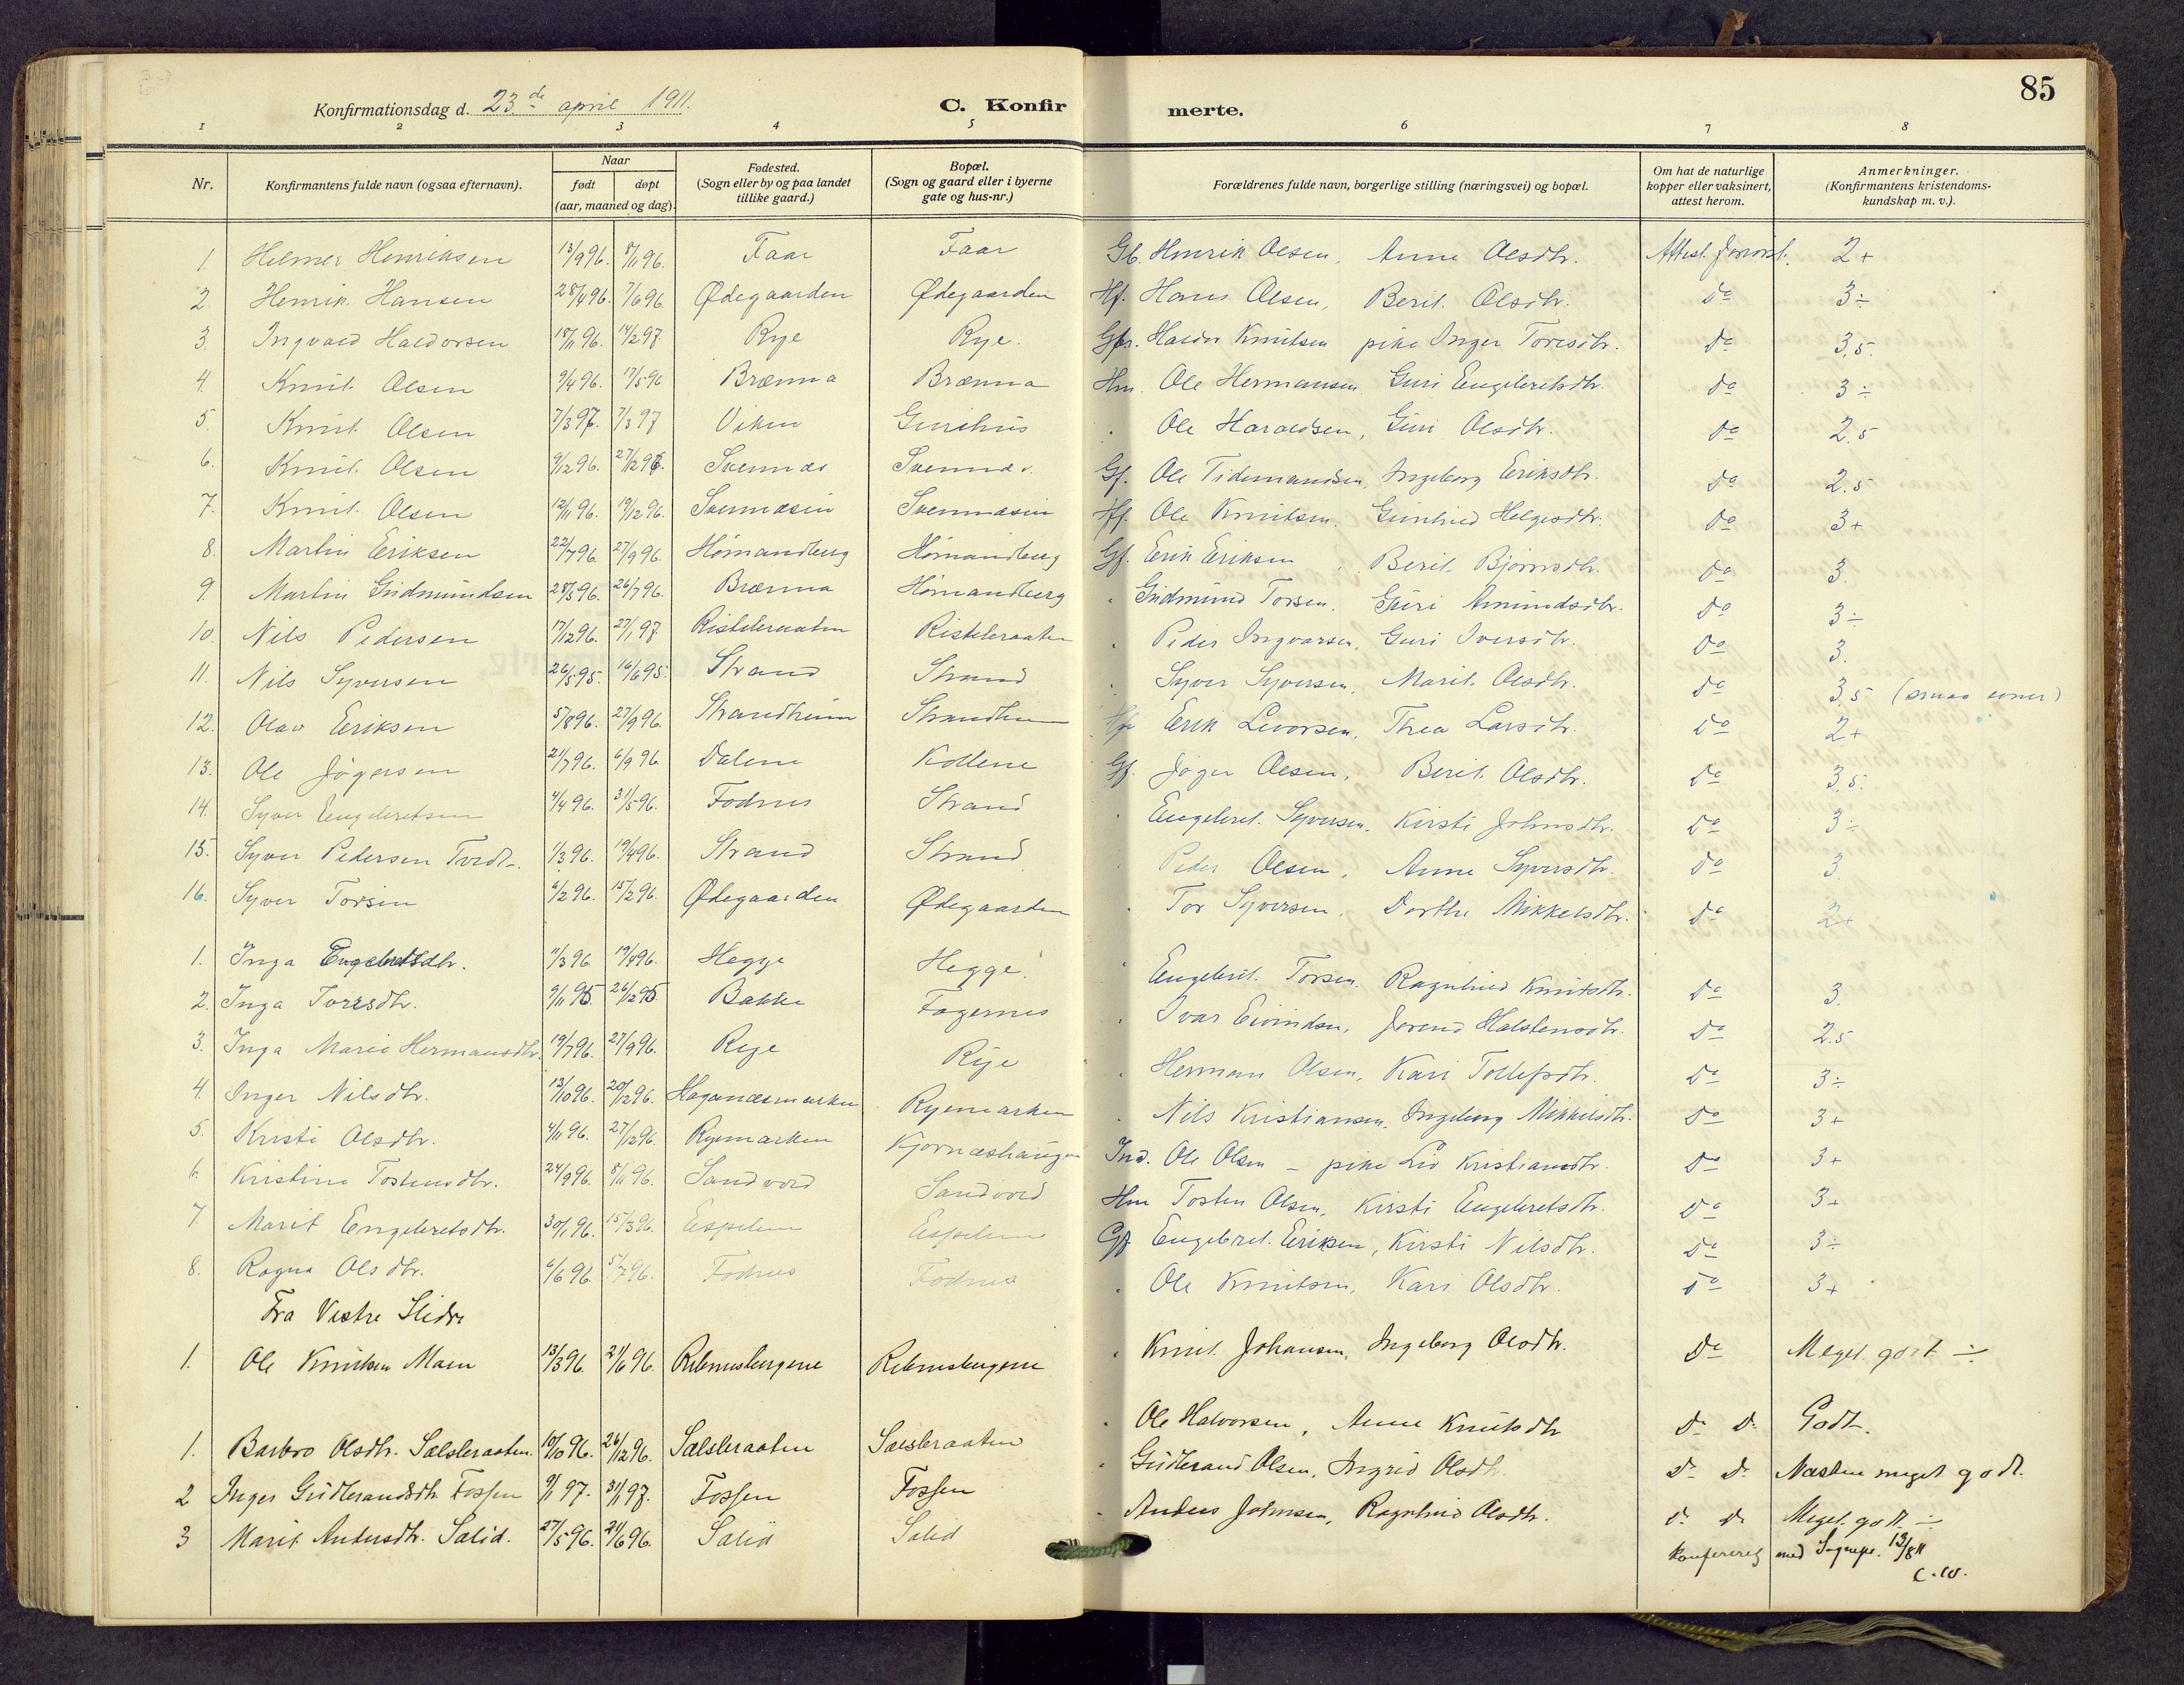 85
Konfirmationsdag d. 23de april 1911. C. Konfirmerte.
1 2 3 4 5 6 7 8
Nr. Konfirmantens fulde navn (ogsaa efternavn). Naar født døpt (aar, maaned og dag). Fødested. (Sogn eller by og paa landet tillike gaard.) Bopæl. (Sogn og gaard eller i byerne gate og hus-nr.) Forældrenes fulde navn, borgerlige stilling (næringsvei) og bopæl. Om hat de naturlige kopper eller vaksinert, attest herom. Anmerkninger. (Konfirmantens kristendoms-kundskap m. v.).
1. Helmer Henriksen 13/9 96. 8/11 96. Faar Faar Gb. Henrik Olsen, Anne Olsdtr. Attest forevist. 2+
2. Henrik Hansen 28/4 96. 7/6 96 Ødegaarden Ødegaarden Hf. Hans Olsen, Berit Olsdtr. Do 3÷
3. Ingvald Haldorsen 18/11 96. 14/2 97. Rye Rye. Haldor Knutsen pike Inger Toresdtr. Do 3,5.
4. Knut Olsen 9/4 96. 17/5 96 Brænna Brænna Hm. Ole Hermansen Guri Engebretsdtr. Do 3÷
5. Knut Olsen 7/3 97. 7/3 97 Viken Gurihus " Ole Haraldsen, Guri Olsdtr. Do 2.5
6. Knut Olsen 9/12 96. 27/12 96. Svennæs Svennæs. Gf. Ole Tidemandsen, Ingeborg Eriksdtr. Do 2.5
7. Knut Olsen 12/11 96. 19/12 96. Svennæsin Svennæsin Hf. Ole Knutsen. Gunhild Helgesdtr. Do 3+
8. Martin Eriksen 22/7 96. 27/9 96. Hømandberg Hømandberg Gf. Erik Eriksen Berit Bjørnsdtr. Do 3.
9. Martin Gudmundsen 28/5 96. 26/7 96. Brænna Hømandberg " Gudmund Torsen. Guri Amundsdtr. Do 3÷
10. Nils Pedersen 17/12 96. 27/1 97. Ristebraaten Ristebraaten " Peder Ingvarsen, Guri Iversdtr. Do 3.
11. Nils Syversen 26/5 95. 16/6 95. Strand Strand " Syver Syversen, Marit Olsdtr. Do 3,5 (smaa evner)
12. Olav Eriksen 5/8 96. 27/9 96. Strandheim Strandheim Erik Levorsen, Thea Larsdtr. Do 2+
13. Ole Jøgersen 21/7 96. 6/9 96 Dalene Kollene Gf. Jøger Olsen, Berit Olsdtr. Do 3,5.
14. Syver Engebretsen 4/4 96. 31/5 96. Fodnes Strand " Engebret Syversen, Kirsti Johnsdtr. Do 3÷
15. Syver Pedersen Tvedt. 1/3 96. 19/4 96. Strand Strand Peder Olsen, Anne Syversdtr. Do 3.
16. Syver Torsen 6/2 96. 15/2 96. Ødegaarden Ødegaarden " Tor Syversen, Dorthe Mikkelsdtr. Do 2+
1. Inga Engebretsdtr. 11/3 96 19/4 96. Hegge Hegge. " Engebret Torsen. Ragnhild Knutsdtr. Do 3.
2. Inga Ivarsdtr. 9/11 95 26/12 95 Bakke Fagernes " Ivar Eivindsen, Jorend Halstensdtr. Do 2.5
3. Inga Marie Hermansdtr. 19/7 96. 27/9 96. Rye Rye " Herman Olsen, Kari Tollefsdtr. Do 3÷
4. Inger Nilsdtr. 13/10 96. 20/12 96. Haganæsmarken Ryemarken " Nils Kristiansen, Ingeborg Mikkelsdtr. Do 3+
5. Kristi Olsdtr. 4/11 96. 27/12 96. Ryemarken Kjørnæshaugen Ind. Ole Olsen – pike Liv Kristiansdtr. Do 3+
6. Kristine Tostensdtr. 24/9 96. 8/11 96. Sandvord Sandvord Hm Tosten Olsen, Kirsti Engebretsdtr. Do 3+
7. Marit Engebretsdtr. 30/1 96. 15/3 96. Espelien Espelien Gf Engebret Eriksen, Kirsti Nilsdtr. Do 3÷
8. Ragna Olsdtr. 6/6 96 5/7 96. Fodnes Fodnes " Ole Knutsen, Kari Olsdtr. Do 3+
Fra Vestre Slidre
1. Ole Knutsen Moen 13/3 96. 21/6 96. Rebnesbergene Rebnesbergene " Knut Johansen, Ingeborg Olsdtr. Do Meget godt ÷
1. Barbro Olsdtr. Sælsbraaten. 10/10 96. 26/12 96. Sælsbraaten Sælsbraaten " Ole Halvorsen, Anne Knutsdtr Do Do Godt.
2 Inger Gudbrandsdtr. Fossen 9/1 97. 31/1 97. Fossen Fossen " Gudbrand Olsen, Ingrid Olsdtr. Do Do Næsten meget godt.
3 Marit Andersdtr. Salid. 27/5 96. 21/6 96. Salid Salid " Anders Johnsen, Ragnhild Olsdtr. Do Do Meget godt ÷
Konfereret med Sognepr. 13/8 11
C.W.